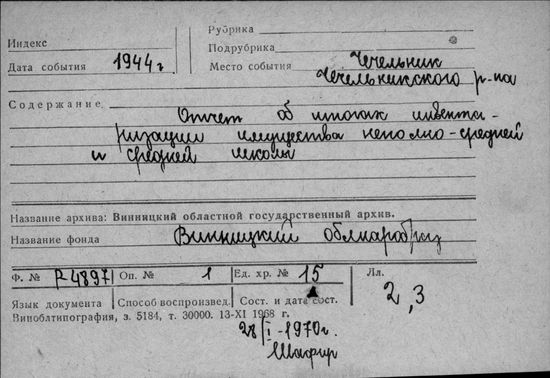 Рубрика
Индекс
Подрубрика
Дата события 1944 г
Место события Чечельник
Чечельникского р-на
Содержание
Отчет об итогах инвента-
ризации имущества неполно-средней
и средней школы
Название архива: Винницкий областной государственный архив.
Название фонда Винницкий облнаробраз
Ф. № Р4897 Оп. № 1 Ед. хр. № 15 Лл.
2,3
Язык документа Способ воспроизвед. Сост. и дата сост.
Виноблтипография, з. 5184, т. 30000. 13-XI 1968 г.
28/I-1970г.
Шафир